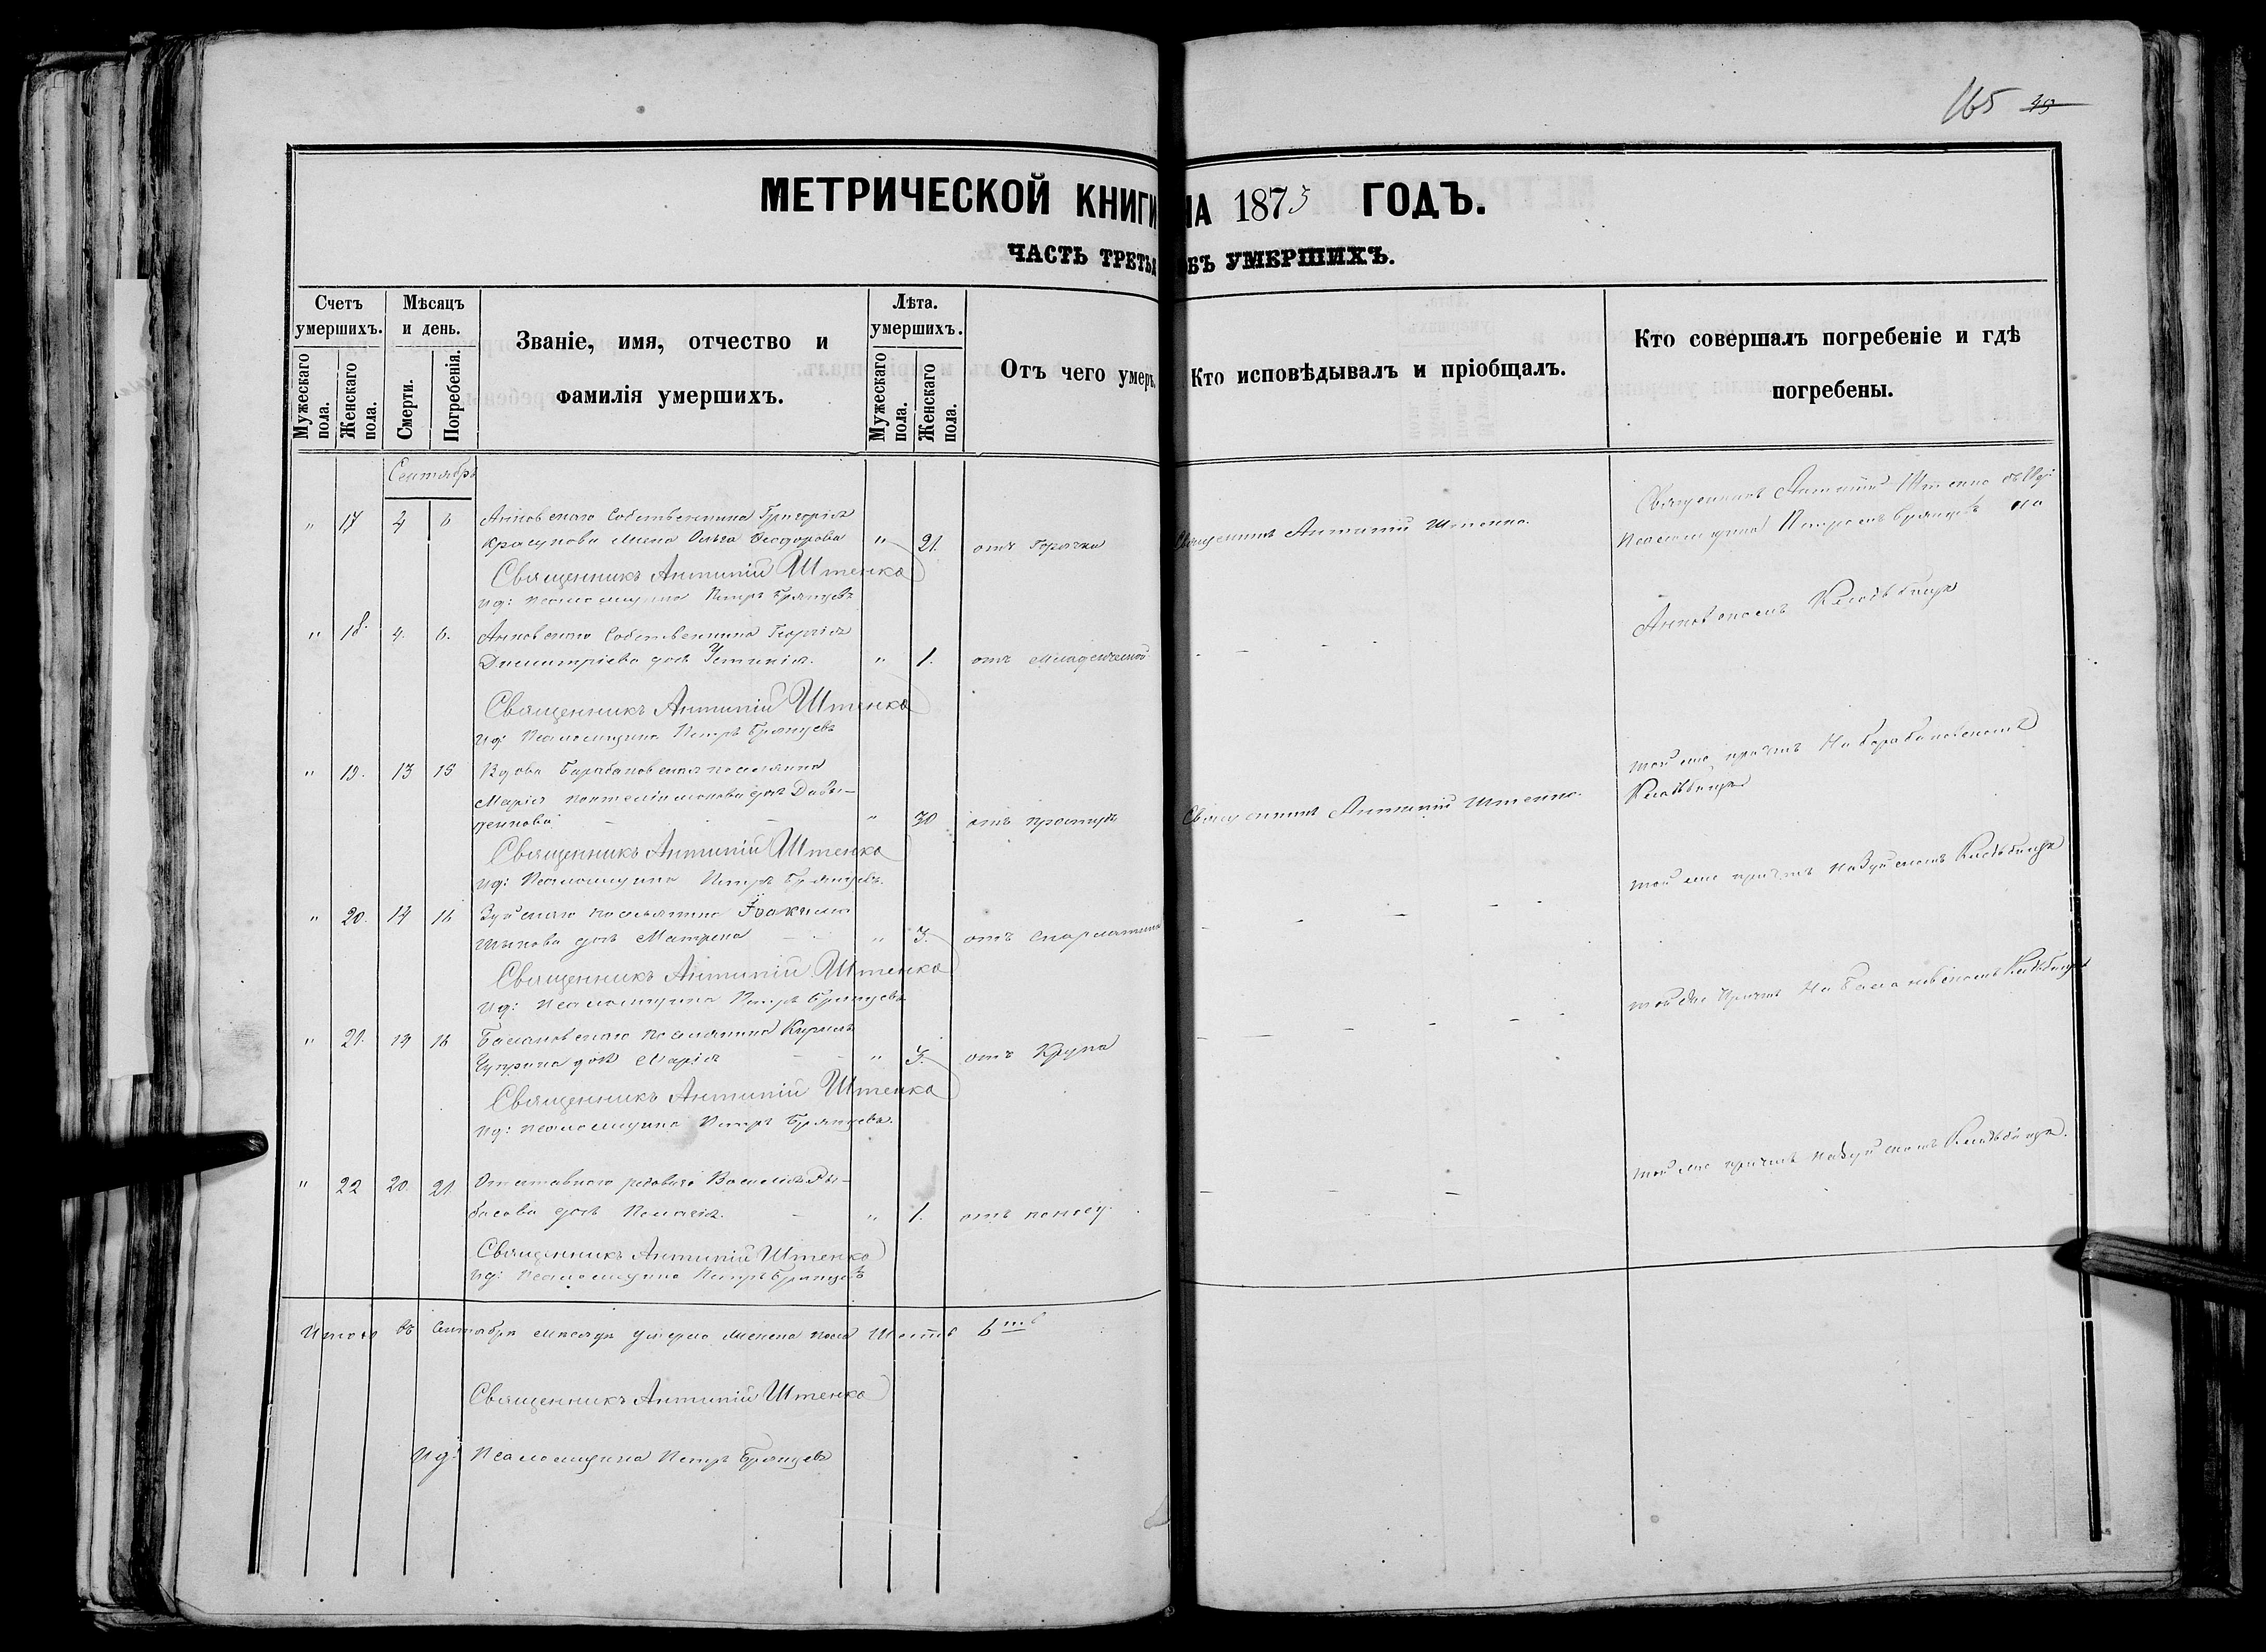 165 49
МЕТРИЧЕСКОЙ КНИГИ НА 1873 ГОДЪ.
ЧАСТЬ ТРЕТЬЯ ОБЪ УМЕРШИХЪ.
Счетъ умершихъ.
Мужескаго пола.
Женскаго пола.
Мѣсяцъ и день.
Смерти.
Погребенія.
Званіе, имя, отчество и
фамилія умершихъ.
Лѣта. умершихъ.
Мужескаго пола.
Женскаго пола.
Отъ чего умеръ.
Кто исповѣдывалъ и пріобщалъ.
Кто совершалъ погребеніе и гдѣ
погребены.
Сентябрь
" 17 4 6 Анновскаго Собственника Григорія
Красунова жена Ольга Ѳеодорова " 21. отъ Горячки Священникъ Антипій Штенко.
Священникъ Антипій Штенко съ
Псаломщика Петромъ Брянцевъ на
Анновскомъ Кладбищѣ
Священникъ Антипій Штенко
Ид: Псаломщика Петръ Брянцевъ
" 18. 4. 6. Анновскаго Собственника Георгія
Димитріева дочь Устинія. " 1. отъ младенческой
Священникъ Антипій Штенко
Ид: Псаломщика Петръ Брянцевъ
" 19. 13 15 Вдова Барабановская поселянка
Марія Пантелімонова дочь
" 70 отъ простуды Священникъ Антипій Штенко.
той же причтъ На Барабановскомъ
Кладбищѣ
Священникъ Антипій Штенко
Ид: Псаломщика Петръ Брянцевъ.
" 20. 14 16 Зуйскаго поселянина Іоакима
дочь Матрона " 3. отъ скарлатины
той же причтъ На Зуйскомъ Кладбищѣ
Священникъ Антипій Штенко
Ид: Псаломщика Петръ Брянцевъ
" 21. 14 16 поселянина Кирилла
Чуприна дочь Марія " 3. отъ Крупа
той же Причтъ На Кладбищѣ
Священникъ Антипій Штенко
Ид: Псаломщика Петръ Брянцевъ.
" 22 20. 21 Отставного рядового Василія Ры-
басова дочь Пелагія. " 1. отъ поносу.
той же причтъ на Зуйскомъ Кладбищѣ.
Священникъ Антипій Штенко
Ид: Псаломщика Петръ Брянцевъ
Итого въ Сентябрѣ мѣсяцѣ умерло Женска пола Шесть 6ть
Священникъ Антипій Штенко
Ид: Псаломщика Петръ Брянцевъ